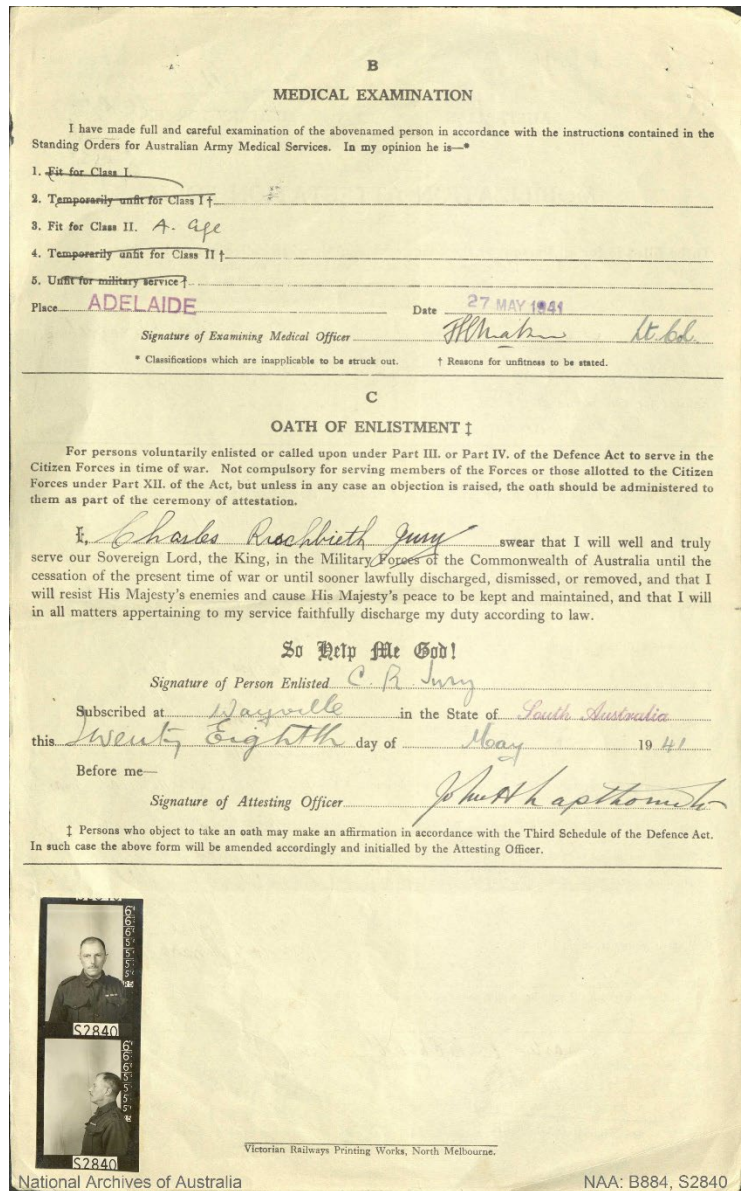 B
MEDICAL EXAMINATION
I have made full and careful examination of the abovenamed person in accordance with the instructions contained in the
Standing Orders for Australian Army Medical Services. In my opinion he is—*
1. Fit for Class I.
2. Temporarily unfit for Class I †
3. Fit for Class II. A. Age
4. Temporarily unfit for Class II †
5. Unfit for military service †
Place ADELAIDE Date 27 MAY 1941
Signature of Examining Medical Officer Lt Col.
* Classifications which are inapplicable to be struck out. † Reasons for unfitness to be stated.
C
OATH OF ENLISTMENT ‡
For persons voluntarily enlisted or called upon under Part III. or Part IV. of the Defence Act to serve in the
Citizen Forces in time of war. Not compulsory for serving members of the Forces or those allotted to the Citizen
Forces under Part XII. of the Act, but unless in any case an objection is raised, the oath should be administered to
them as part of the ceremony of attestation.
I, Charles Rischbieth Jury swear that I will well and truly
serve our Sovereign Lord, the King, in the Military Forces of the Commonwealth of Australia until the
cessation of the present time of war or until sooner lawfully discharged, dismissed, or removed, and that I
will resist His Majesty's enemies and cause His Majesty's peace to be kept and maintained, and that I will
in all matters appertaining to my service faithfully discharge my duty according to law.
So Help Me God!
Signature of Person Enlisted C. R. Jury
Subscribed at Wayville in the State of South Australia
this Twenty Eighth day of May 1941
Before me—
Signature of Attesting Officer John H
‡ Persons who object to take an oath may make an affirmation in accordance with the Third Schedule of the Defence Act.
In such case the above form will be amended accordingly and initialled by the Attesting Officer.
S2840
S2840
Victorian Railways Printing Works, North Melbourne.
National Archives of Australia NAA: B884, S2840